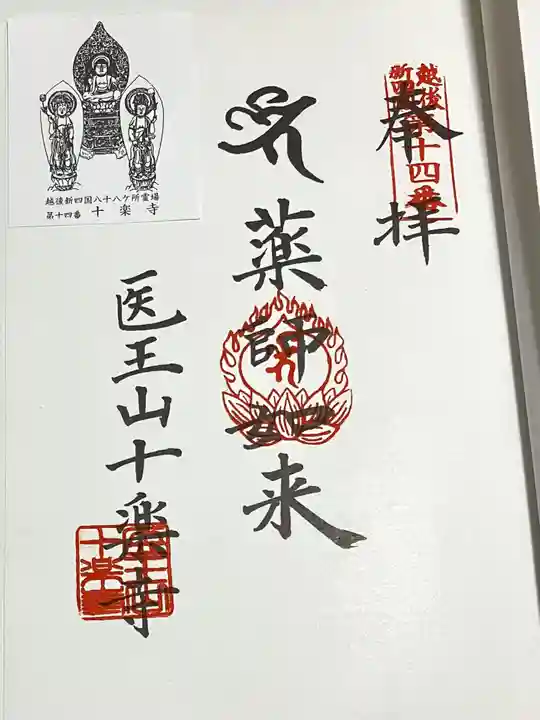 奉拝
越後
新四国第十四番
薬師如来
医王山十楽寺
越後新四国八十八ケ所霊場
第十四番 十楽寺